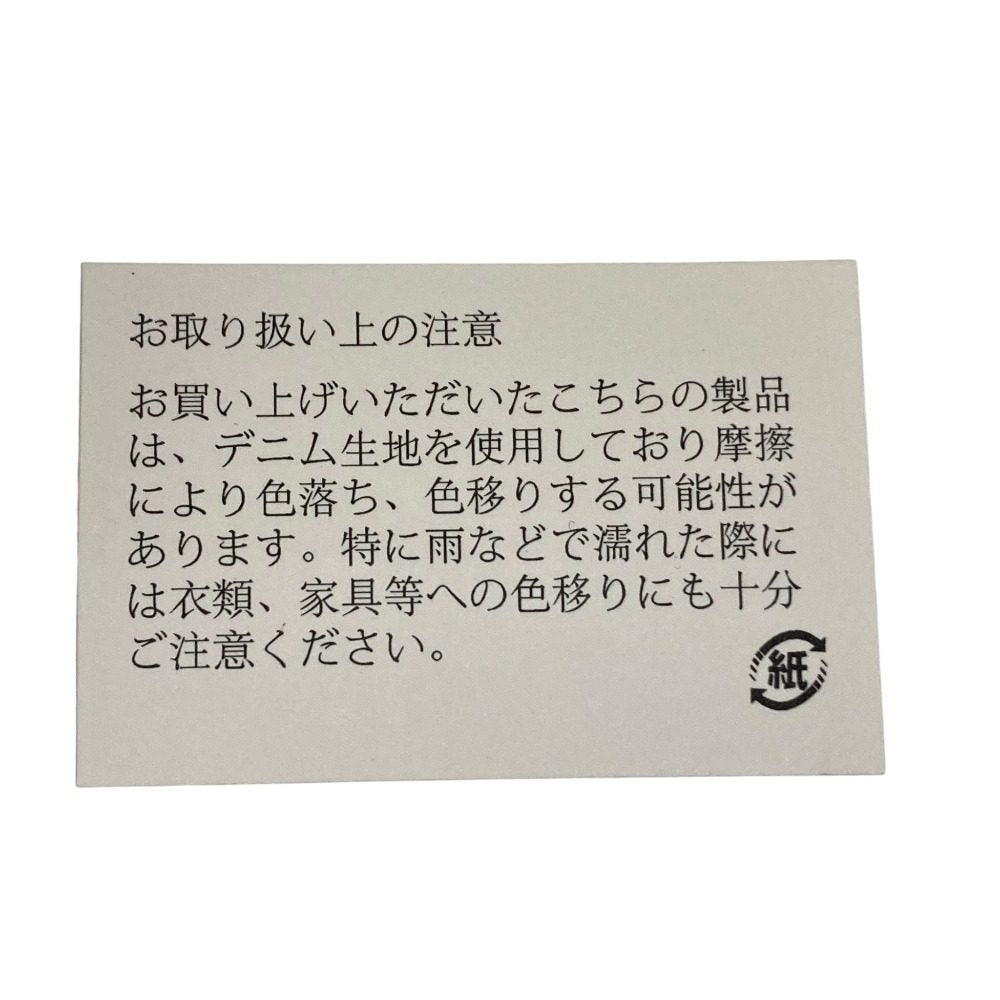 お取り扱い上の注意
お買い上げいただいたこちらの製品
は、デニム生地を使用しており摩擦
により色落ち、色移りする可能性が
あります。特に雨などで濡れた際に
は衣類、家具等への色移りにも十分
ご注意ください。
紙